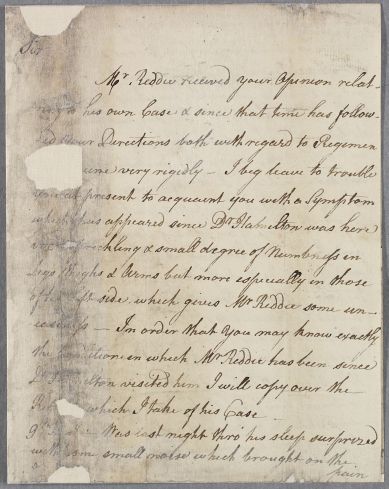 Sir
Mr Reddie received your Opinion relat-
ing to his own Case & since that time has follow-
ed your Directions both with regard to Regimen
very rigidly – I beg leave to trouble
at present to acquaint you with a Symptom
which has appeared since Dr Hamilton was here
prickling & small degree of Numbness in
Legs Thighs & Arms but more especially in those
of the left side, which gives Mr Reddie some un-
easiness – In order that You may know exactly
the Condition in which Mr Reddie has been since
Dr Hamilton visited him I will copy over the
which I take of his Case
Was last night thro' his sleep surprized
with some small noise which brought on the
pain